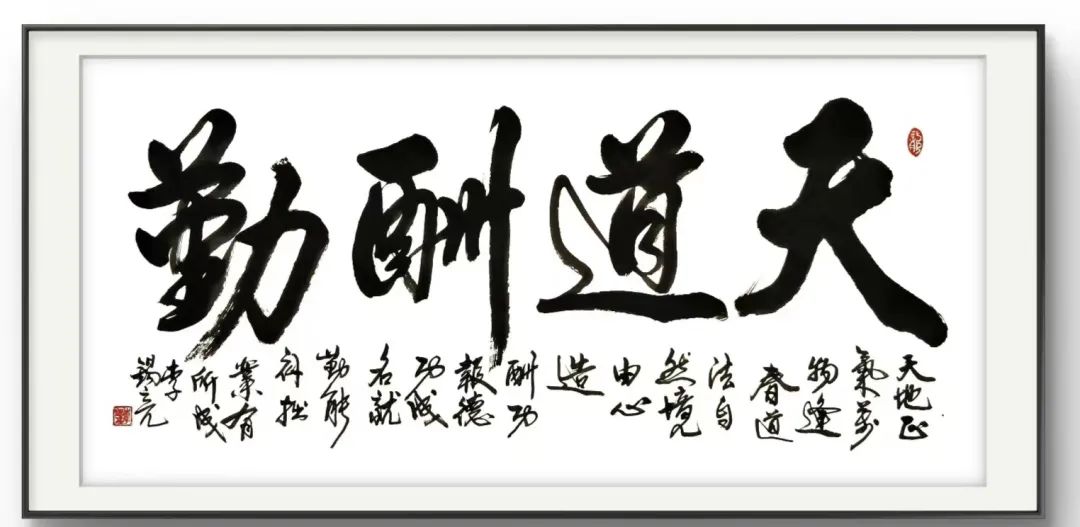 天道酬勤
天地正
氣萬
物逢
春道
法自
然境
由心
造
酬功
報德
功成
名就
勤能
補拙
業有
所成
李
錫元